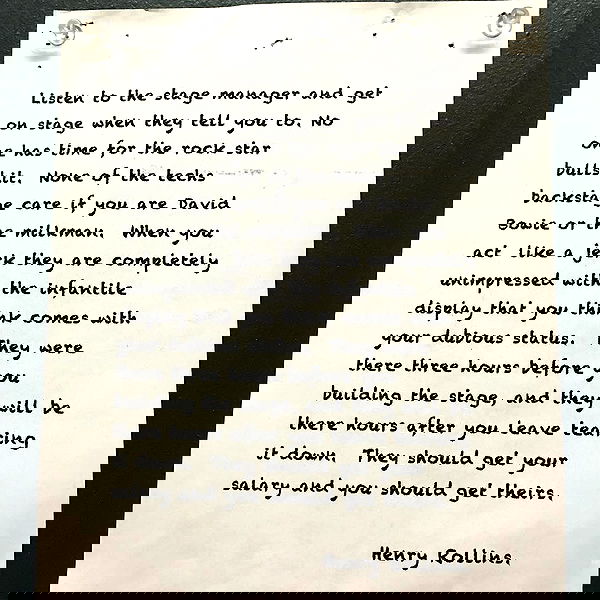 Listen to the stage manager and get
on stage when they tell you to. No
one has time for the rock star
bullshit. None of the techs
backstage care if you are David
Bowie or the milkman. When you
act like a jerk they are completely
unimpressed with the infantile
display that you think comes with
your dubious status. They were
there three hours before you
building the stage and they will be
there hours after you leave tearing
it down. They should get your
salary and you should get theirs.
Henry Rollins.